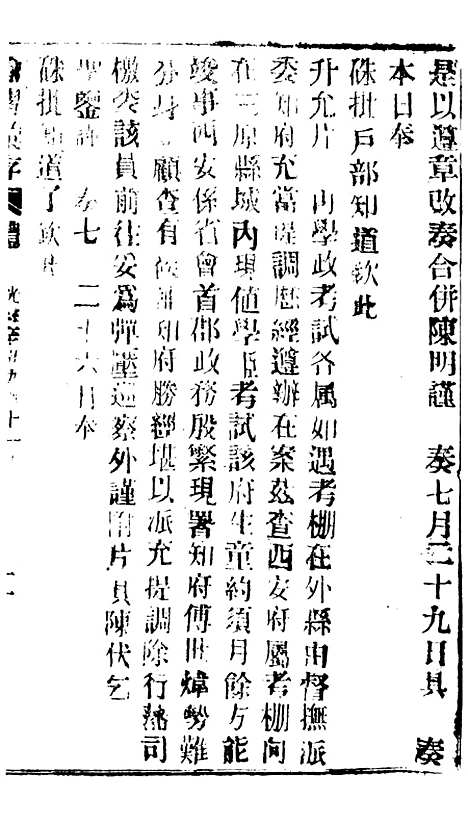 是以遵章改奏合併陳明謹 奏七月二十九日具 奏
本日奉
硃批戶部知道欽此
升允片 由學政考試各属如遇考棚在外縣由督撫派
委知府充當提調歷經遵辦在案茲查西安府屬考棚向
在三原縣城內現値學臣考試該府生童約須月餘方能
竣事西安係省會首郡政務殷繁現署知府傅世煒勢難
分身 顧查有候補知府勝 堪以派充提調除行藩司
檄委該員前往妥爲彈壓巡察外謹附片具陳伏乞
聖鑒謹 奏七 二十六日奉
硃批知道了欽此
諭摺彙存 光緒 十